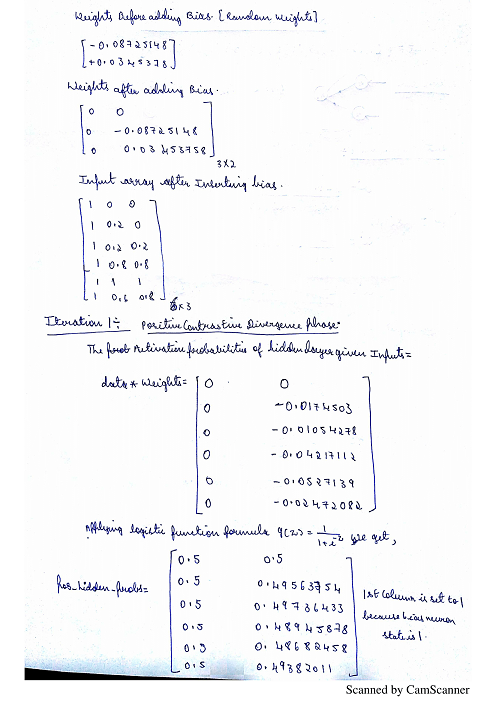 Weights Before adding Bias. [Random Weights]
[-0.08725148]
[+0.0345378]
Weights after adding Bias.
0 0
0 -0.08725148
0 0.03453758
3x2
Input array after Inserting bias.
1 0 0
1 0.2 0
1 0.2 0.2
1 0.8 0.8
1 1 1
1 0.8
6x3
Iteration 1÷ Positive Contrastive Divergence phase-
The Activation probabilities of hidden layer given Inputs=
data * Weights=
0 0
0 -0.0174503
0 -0.01054278
0 -0.04217112
0 -0.0527139
0 -0.02472082
Applying logistic function formula g(z) = 1/1+e^-z we get,
Pos_hidden_probs=
0.5 0.5
0.5 0.49563754
0.5 0.49736433
0.5 0.48945878
0.5 0.48682458
0.5 0.49382011
1st Column is set to 1
because bias neuron
state is 1.
Scanned by CamScanner